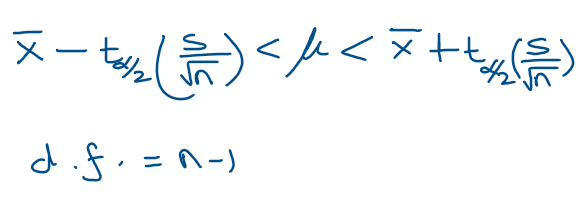 x̄ − t_{α/2} (s/√n) < μ < x̄ + t_{α/2} (s/√n)
d.f. = n-1